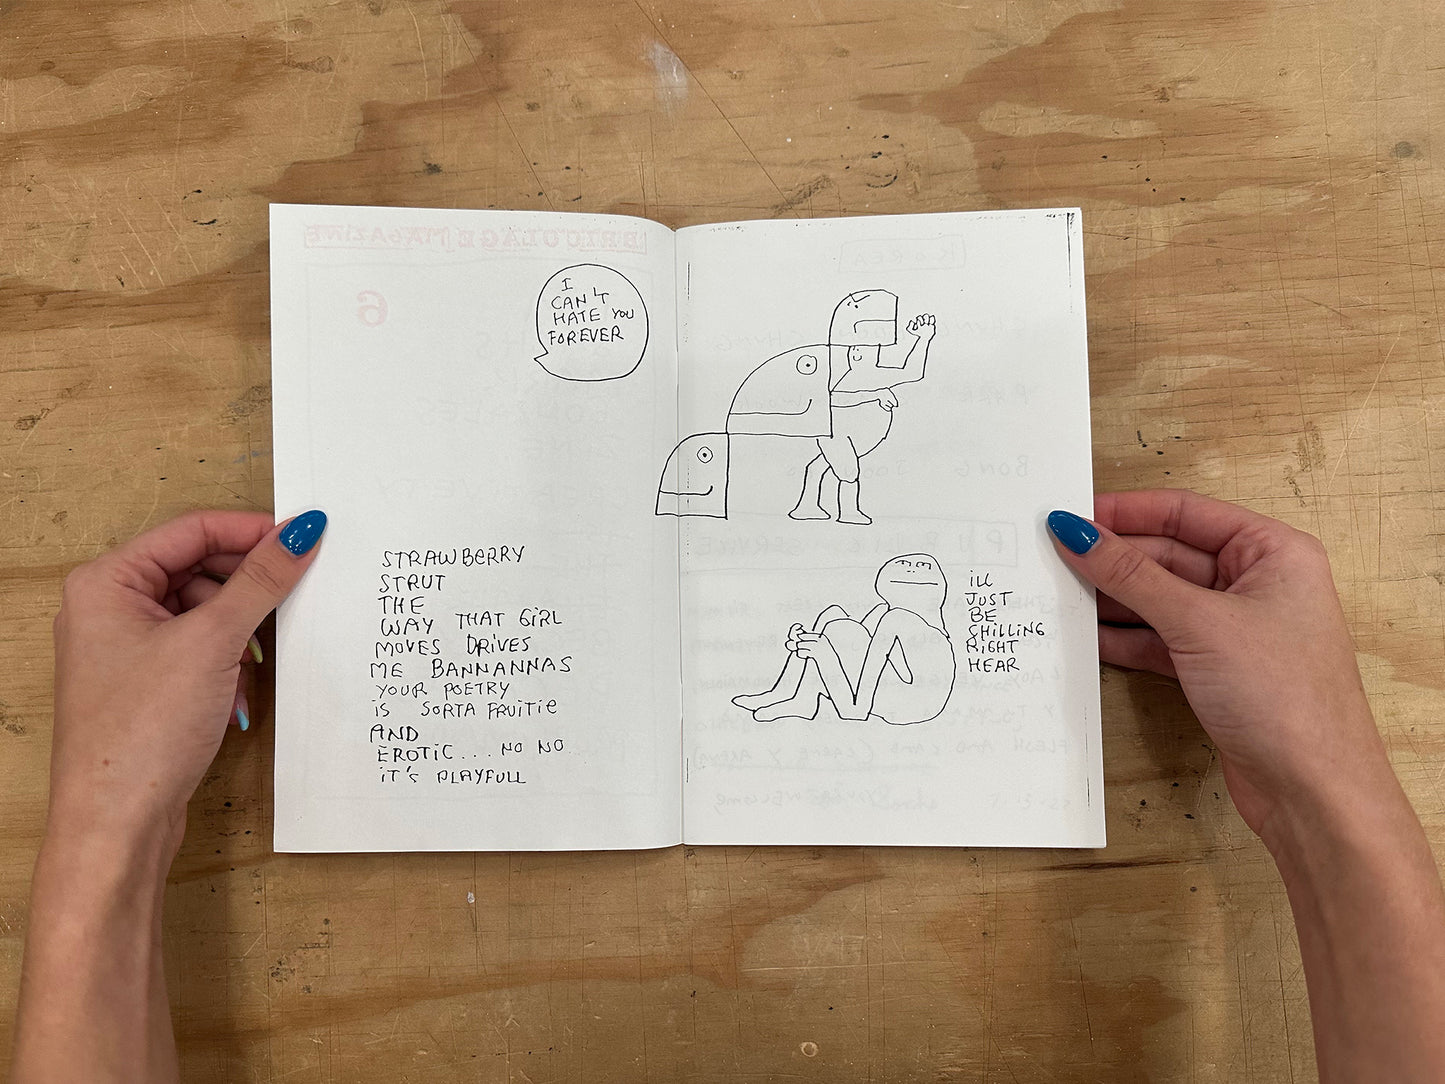 I
CAN'T
HATE YOU
FOREVER
STRAWBERRY
STRUT
THE
WAY THAT GIRL
MOVES DRIVES
ME BANNANNAS
YOUR POETRY
IS SORTA FRUITIE
AND
EROTIC... NO NO
IT'S PLAYFULL
ILL
JUST
BE
CHILLING
RIGHT
HEAR
BRICOLAGE MAGAZINE
6
KOREA
BONG JOON